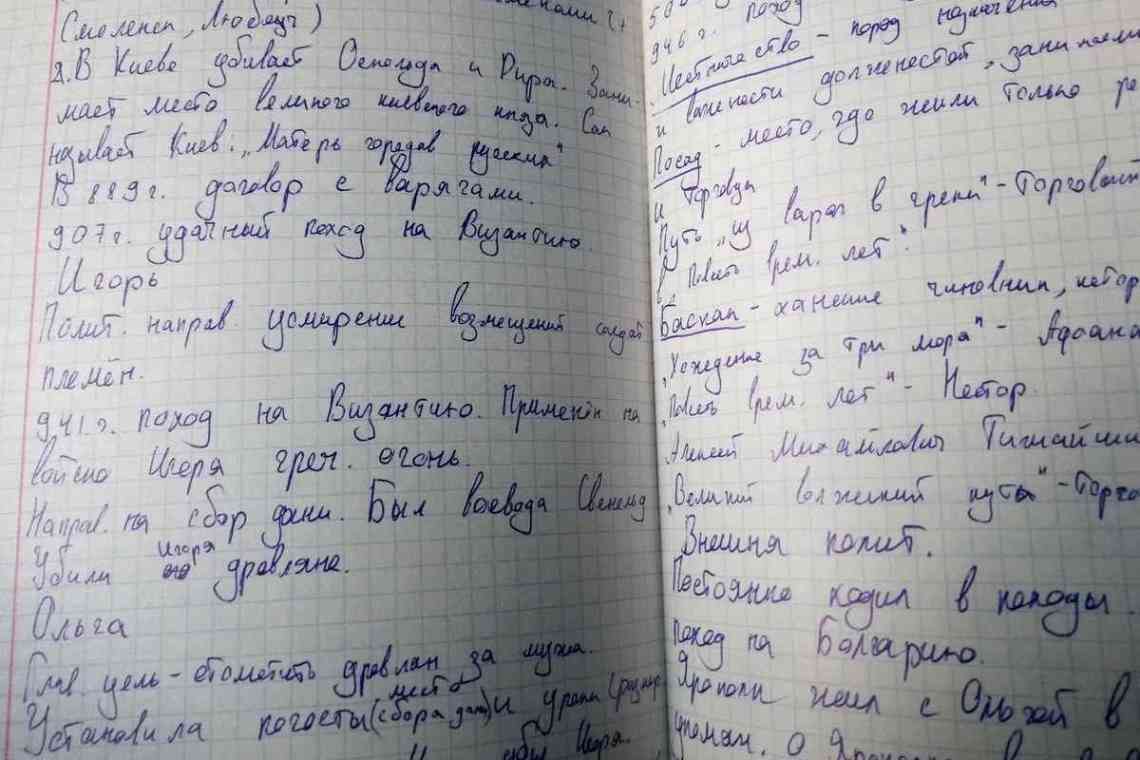 (Смоленск, Любеч)
2. В Киеве убивает Оскольда и Дира. Зани-
мает место великого киевского князя. Сам
называет Киев „Матерь городов русских"
В 889г. договор с варягами.
907г. удачный поход на Византию.
Игорь
Полит. направ. усмирение возмещений солдат
племён.
941г. поход на Византию. Применён на
войско Игоря греч. огонь.
Направ. на сбор дани. Был воевода Свенельд
Убили Игоря древляне.
Ольга
Глав. цель - отомстить древлян за мужа.
Установила погосты (место сбора дани) и уроки (размер
Игоря.
946г. поход
Местничество - поряд назначения
и важности должностей, занимаем
Посад - место, где жили только ре
и торговцы
Путь „из варяг в греки" - Торговый
в „Повесть врем. лет".
Баскак - ханские чиновник, котор
„Хождение за три моря" - Афана
„Повесть врем. лет" - Нестор.
Алексей Михайлович Тишайши
„Великий волжский путь" - Торго
Внешня полит.
Постоянно ходил в походы.
поход на Болгарию.
Ярополк жил с Ольгой в
христиан. О Ярополке